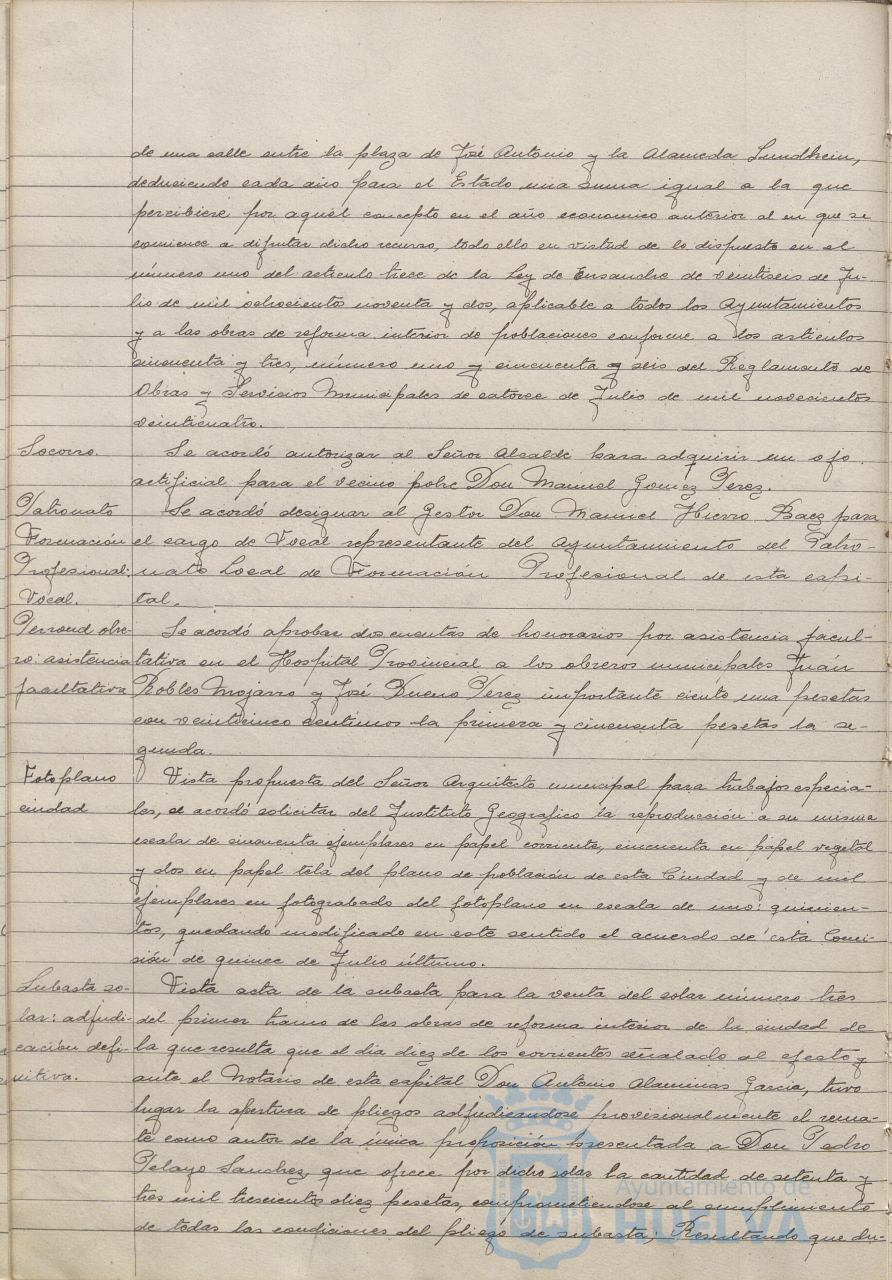 de una calle entre la plaza de José Antonio y la Alameda Sundheim,
deduciendo cada año para el Estado una suma igual a la que
percibiese por aquél concepto en el año economico anterior al en que se
comience a disfrutar dicho recurso, todo ello en virtud de lo dispuesto en el
número uno del articulo trece de la Ley de Ensanche de veintiseis de Ju-
lio de mil ochocientos noventa y dos, aplicable a todos los Ayuntamientos
y a las obras de reforma interior de poblaciones conforme a los articulos
cincuenta y tres, número uno y cincuenta y seis del Reglamento de
Obras y Servicios Municipales de catorce de Julio de mil novecientos
veinticuatro.
Socorro. Se acordó autorizar al Señor Alcalde para adquirir un ojo
artificial para el vecino pobre Don Manuel Gomez Perez.
Patronato Se acordó designar al Gestor Don Manuel Hierro Baez para
Formación el cargo de Vocal representante del Ayuntamiento del Patro-
Profesional: nato Local de Formación Profesional de esta capi-
Vocal. tal.
Personal obre- Se acordó aprobar dos cuentas de honorarios por asistencia facul-
ro: asistencia tativa en el Hospital Provincial a los obreros municipales Juán
facultativa Robles Mojarro y José Bueno Perez importante ciento una pesetas
con veinticinco centimos la primera y cincuenta pesetas la se-
gunda.
Fotoplano Vista propuesta del Señor Arquitecto municipal para trabajos especia-
ciudad les, se acordó solicitar del Instituto Geografico la reproducción a su misma
escala de cincuenta ejemplares en papel corriente, cincuenta en papel vegetal
y dos en papel tela del plano de población de esta Ciudad y de mil
ejemplares en fotograbado del fotoplano en escala de uno: quinien-
tos, quedando modificado en este sentido el acuerdo de esta Comi-
sión de quince de Julio último.
Subasta so- Vista acta de la subasta para la venta del solar número tres
lar: adjudi- del primer tramo de las obras de reforma interior de la ciudad de
cación defi- la que resulta que el dia diez de los corrientes señalado al efecto y
nitiva. ante el Notario de esta capital Don Antonio Alaminas Garcia, tuvo
lugar la apertura de pliegos adjudicandose provisionalmente el rema-
te como autor de la única proposición presentada a Don Pedro
Pelayo Sanchez, que ofrece por dicho solar la cantidad de setenta y
tres mil trescientos diez pesetas, comprometiendose al cumplimiento
de todas las condiciones del pliego de subasta; Resultando que du-
Ayuntamiento de
HUELVA